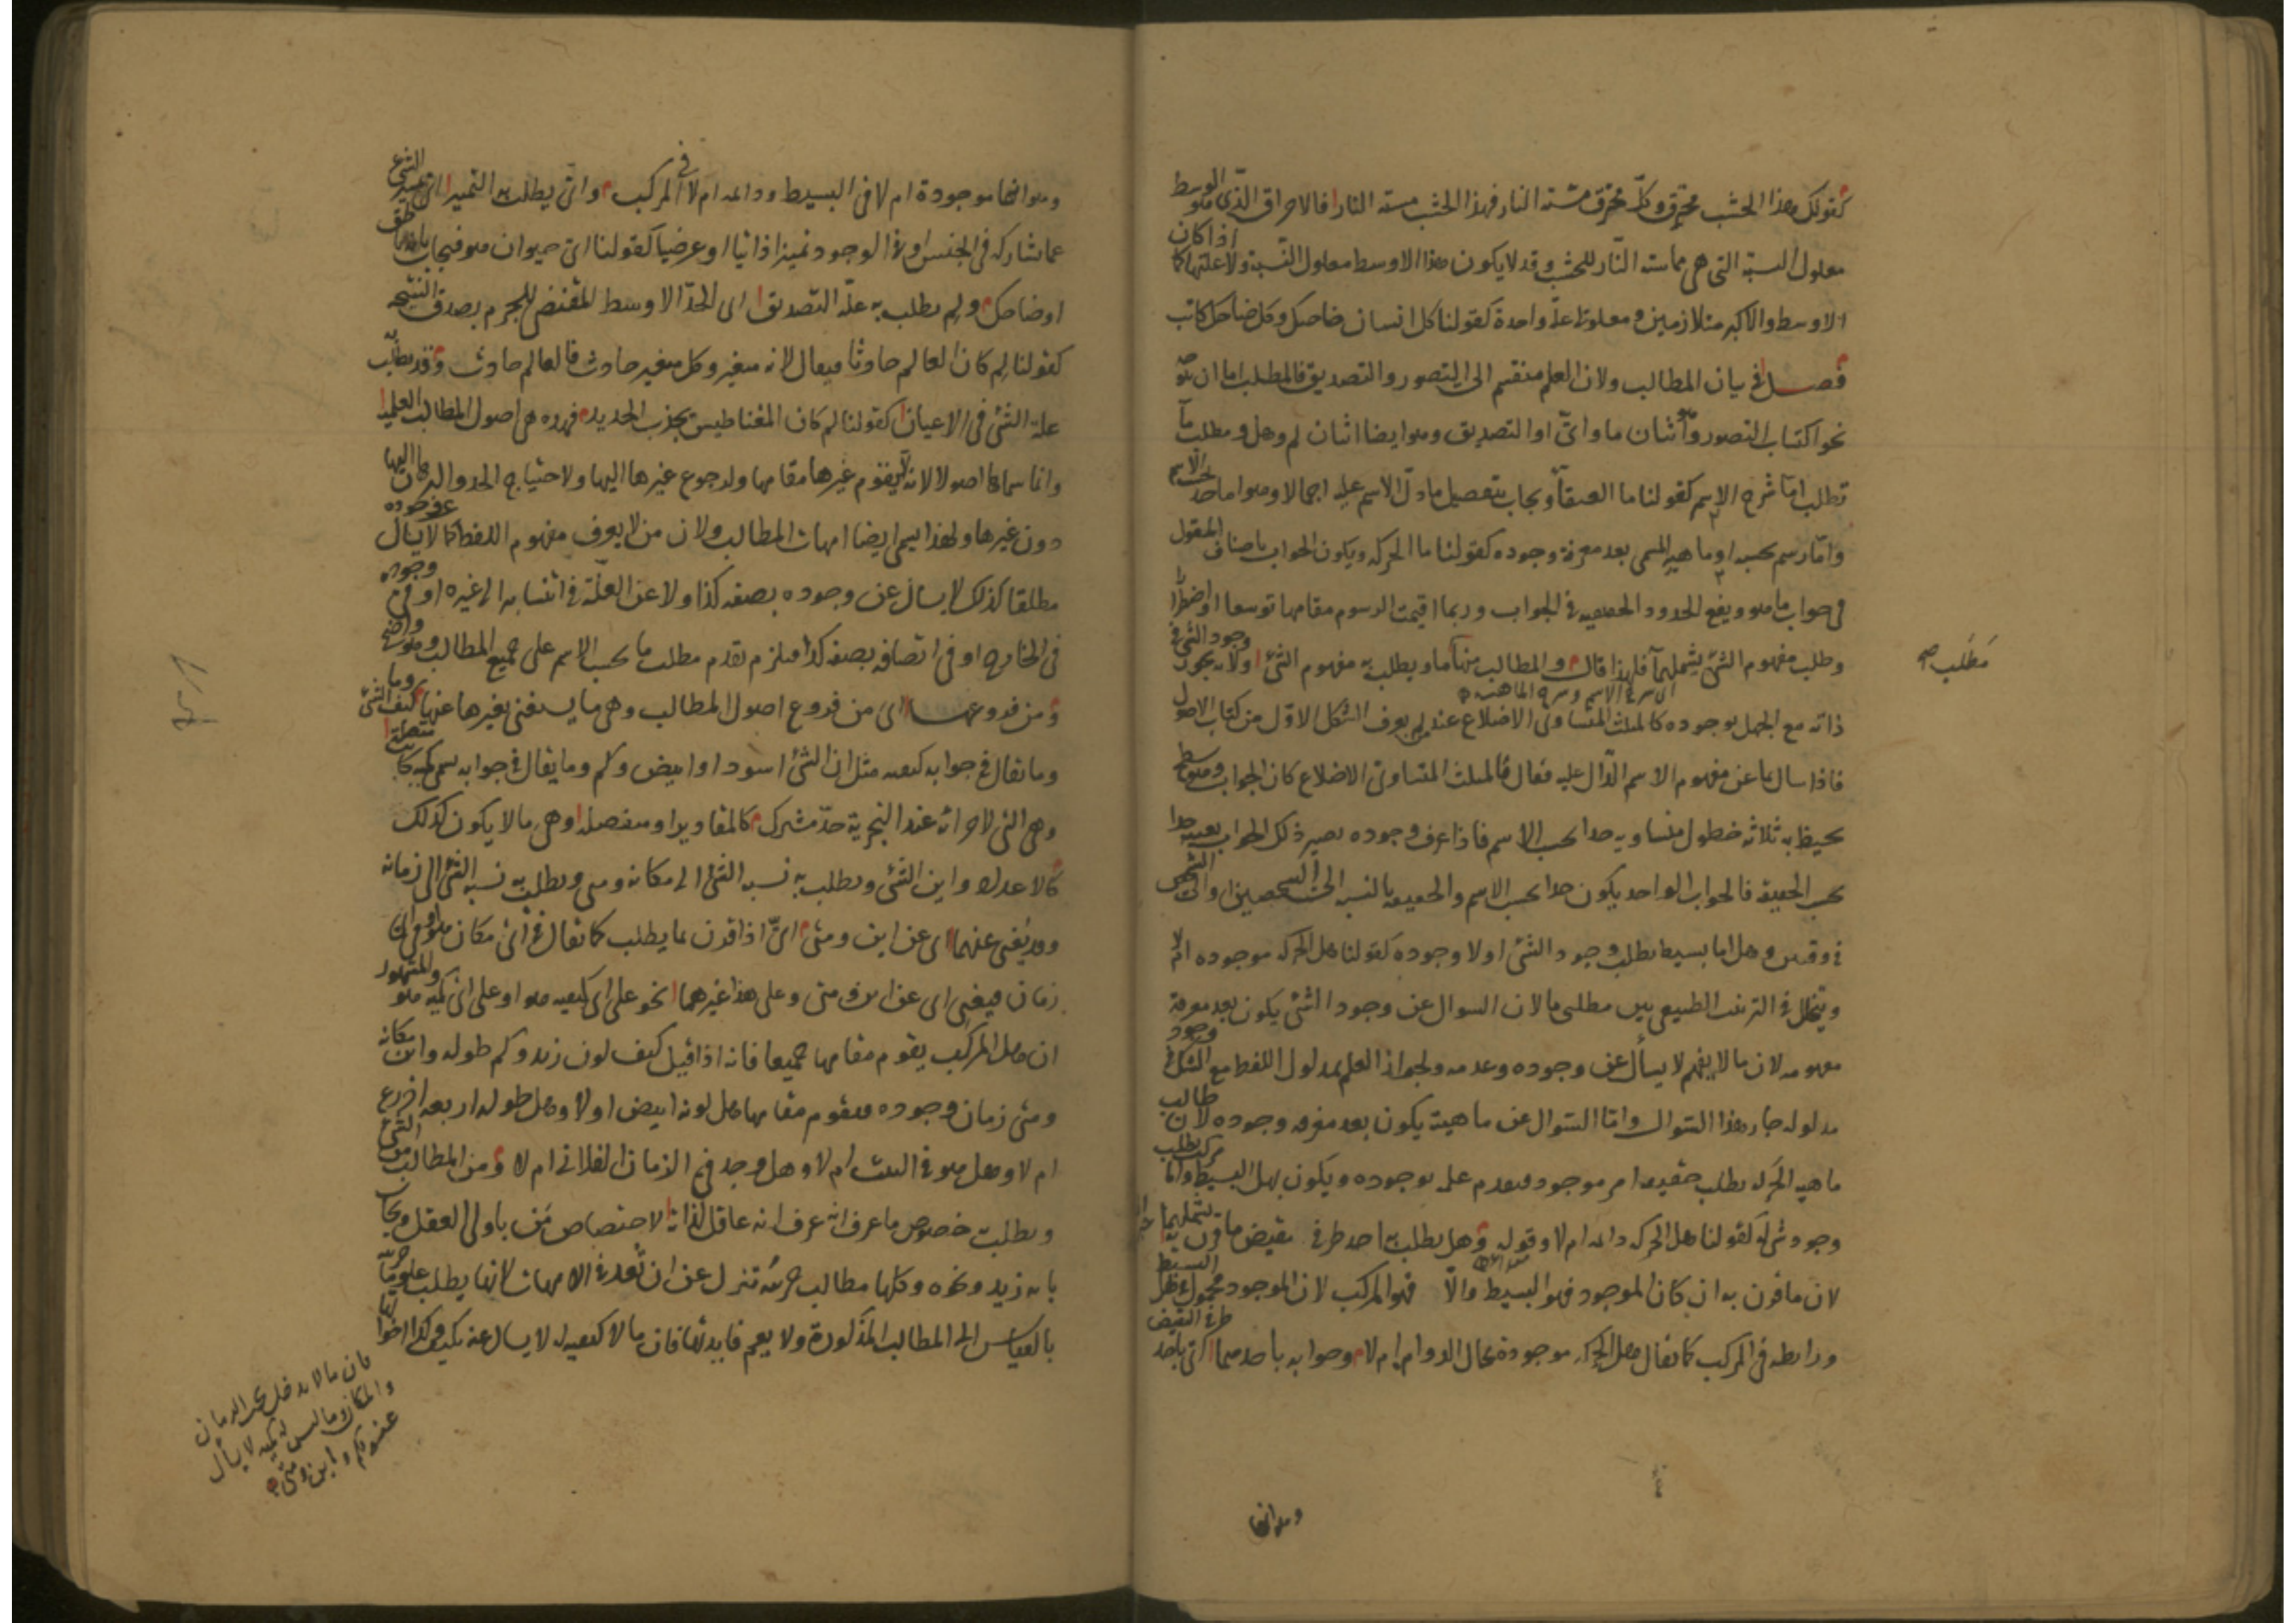 كقولك هذا الخشب محترق وكل محترق مسته النار فهذا الخشب مسته النار فالاحراق الذي هو الوسط
معلول النسبة التي هي مماسته النار للخشب وقد لا يكون هذا الاوسط معلول النسبة ولا علتها كما اذا كان
الاوسط والاكبر متلازمين ومعلولى علة واحدة كقولنا كل انسان ضاحك وكل ضاحك كاتب
فصل في بيان المطالب ولان العلم منقسم الى التصور والتصديق فالمطلب اما ان يتوجه
نحو اكتساب التصور وهو اثنان ما واى او التصديق وهو ايضا اثنان لم وهل ومطلب ما
تطلب اما شرح الاسم كقولنا ما العنقاء ويجاب بتفصيل ما دل الاسم عليه اجمالا وهو اما حد بحسب الاسم
واما رسم بحسبه او ماهية المسمى بعد معرفة وجوده كقولنا ما الحركة ويكون الجواب باصناف المقول
فى جواب ما هو ويقع الحدود الحقيقيه فى الجواب وربما اقيمت الرسوم مقامها توسعا او اضطرارا
وطلب مفهوم الشئ يشملهما فلهذا قال والمطالب منها ما ويطلب به مفهوم الشئ اولا يجوز وجود الشئ في
اى شرح الاسم وشرح الماهية
ذاته مع الجهل بوجوده كالمثلث المتساوى الاضلاع عند من لم يعرف الشكل الاول من كتاب الاصول
فاذا سال بما عن مفهوم الاسم الدال عليه فقال ما المثلث المتساوى الاضلاع كان الجواب وهو سطح
يحيط به ثلاثة خطوط متساويه حدا بحسب الاسم فاذا عرف وجوده يصير ذلك الجواب بعينه حدا
بحسب الحقيقة فالجواب الواحد يكون حدا بحسب الاسم والحقيقه بالنسبه الى الشخصين او الى الشخص
فى وقتين وهل اما بسيط يطلب وجود الشئ او لا وجوده كقولنا هل الحركه موجوده ام لا
ويتخلل فى الترتيب الطبيعى بين مطلبى ما لان السوال عن وجود الشئ يكون بعد معرفة
مفهومه لان ما لا يفهم لا يسأل عن وجوده وعدمه ولجواز العلم بمدلول اللفظ مع الشك فى وجود
مدلوله جاز هذا السوال واما السوال عن ماهيته يكون بعد معرفه وجوده لان طالب
ماهيه الحركه يطلب حقيقه امر موجود فيقدم علمه بوجوده ويكون بهل البسيط واما مركب يطلب
وجود شئ له كقولنا هل الحركه دائمه ام لا وقوله وهل يطلب به احد طرفى نقيض ما قرن به يشملهما
لان ما قرن به ان كان الموجود فهو البسيط والا فهو المركب لان الموجود محمول فى هل البسيط
ورابطه فى المركب كما يقال هل الحركه موجودة بحال الدوام ام لا وجوابه باحدهما اى باحد طرفى النقيض
مطلب
وهو انها
وهو انها موجودة ام لا فى البسيط ودائمه ام لا فى المركب واى يطلب به التمييز اى تمييز الشئ
عما يشاركه فى الجنس او فى الوجود تمييزا ذاتيا او عرضيا كقولنا اى حيوان هو فيجاب بانه ناطق
او ضاحك ولم يطلب به علة التصديق اى الحد الاوسط المقتضى للجزم بصدق النتيجه
كقولنا لم كان العالم حادثا فيقال لانه متغير وكل متغير حادث فالعالم حادث وقد يطلب
علة الشئ فى الاعيان كقولنا لم كان المغناطيس يجذب الحديد فهذه هى اصول المطالب العلمية
وانما سماها اصولا لانه لا يقوم غيرها مقامها ولرجوع غيرها اليها ولاحتياج الحد والبرهان اليها
دون غيرها ولهذا يسمى ايضا امهات المطالب ولان من لا يعرف مفهوم اللفظ كما لا يسال عن وجوده
مطلقا كذلك لا يسال عن وجوده بصفه كذا ولا عن العلة فى انتسابه الى غيره او فى وجوده
فى الخارج او فى اتصافه بصفه كذا فيلزم تقدم مطلب ما بحسب الاسم على جميع المطالب وهو واضح
ومن فروعها اى من فروع اصول المطالب وهى ما يستغنى بغيرها عنها كيف الشئ وما
وما يقال فى جوابه كيفيه مثل ان الشئ اسود او ابيض وكم وما يقال فى جوابه يسمى كميه كانت متصلة
وهى التى لاجزائه عند التجزية حد مشترك كالمقادير او منفصلة وهى ما لا يكون كذلك
كالاعداد واين الشئ ويطلب به نسبه الشئ الى مكانه ومتى ويطلب به نسبه الشئ الى زمانه
وقد يغنى عنهما اى عن اين ومتى اى اذا قرن بما يطلب كما يقال فى اى مكان هو او فى اى
زمان فيغنى اى عن اين ومتى وعلى هذا غيرهما نحو على اى كيفيه هو او على اى كميه هو والمشهور
ان هل المركب يقوم مقامها جميعا فانه اذا قيل كيف لون زيد وكم طوله واين مكانه
ومتى زمان وجوده فيقوم مقامها هل لونه ابيض او لا وهل طوله اربعه اذرع
ام لا وهل هو فى البيت ام لا وهل وجد فى الزمان الفلانى ام لا ومن المطالب من الشئ
ويطلب به خصوص ما عرف انه عاقل لذاته لاختصاص من باولى العقل ويجاب
بانه زيد ونحوه وكلها مطالب جزئيه تنزل عن ان تعد فى الامهات لانها يطلب بها علوم جزئيه
بالقياس الى المطالب المذكورة ولا يعم فايدتها فان ما لا كيفيه له لا يسال عنه بكيف وكذا اخواتها
فان ما لا يدخل تحت الزمان
والمكان وما ليس له كميه لا يسأل
عنه بكم واين ومتى